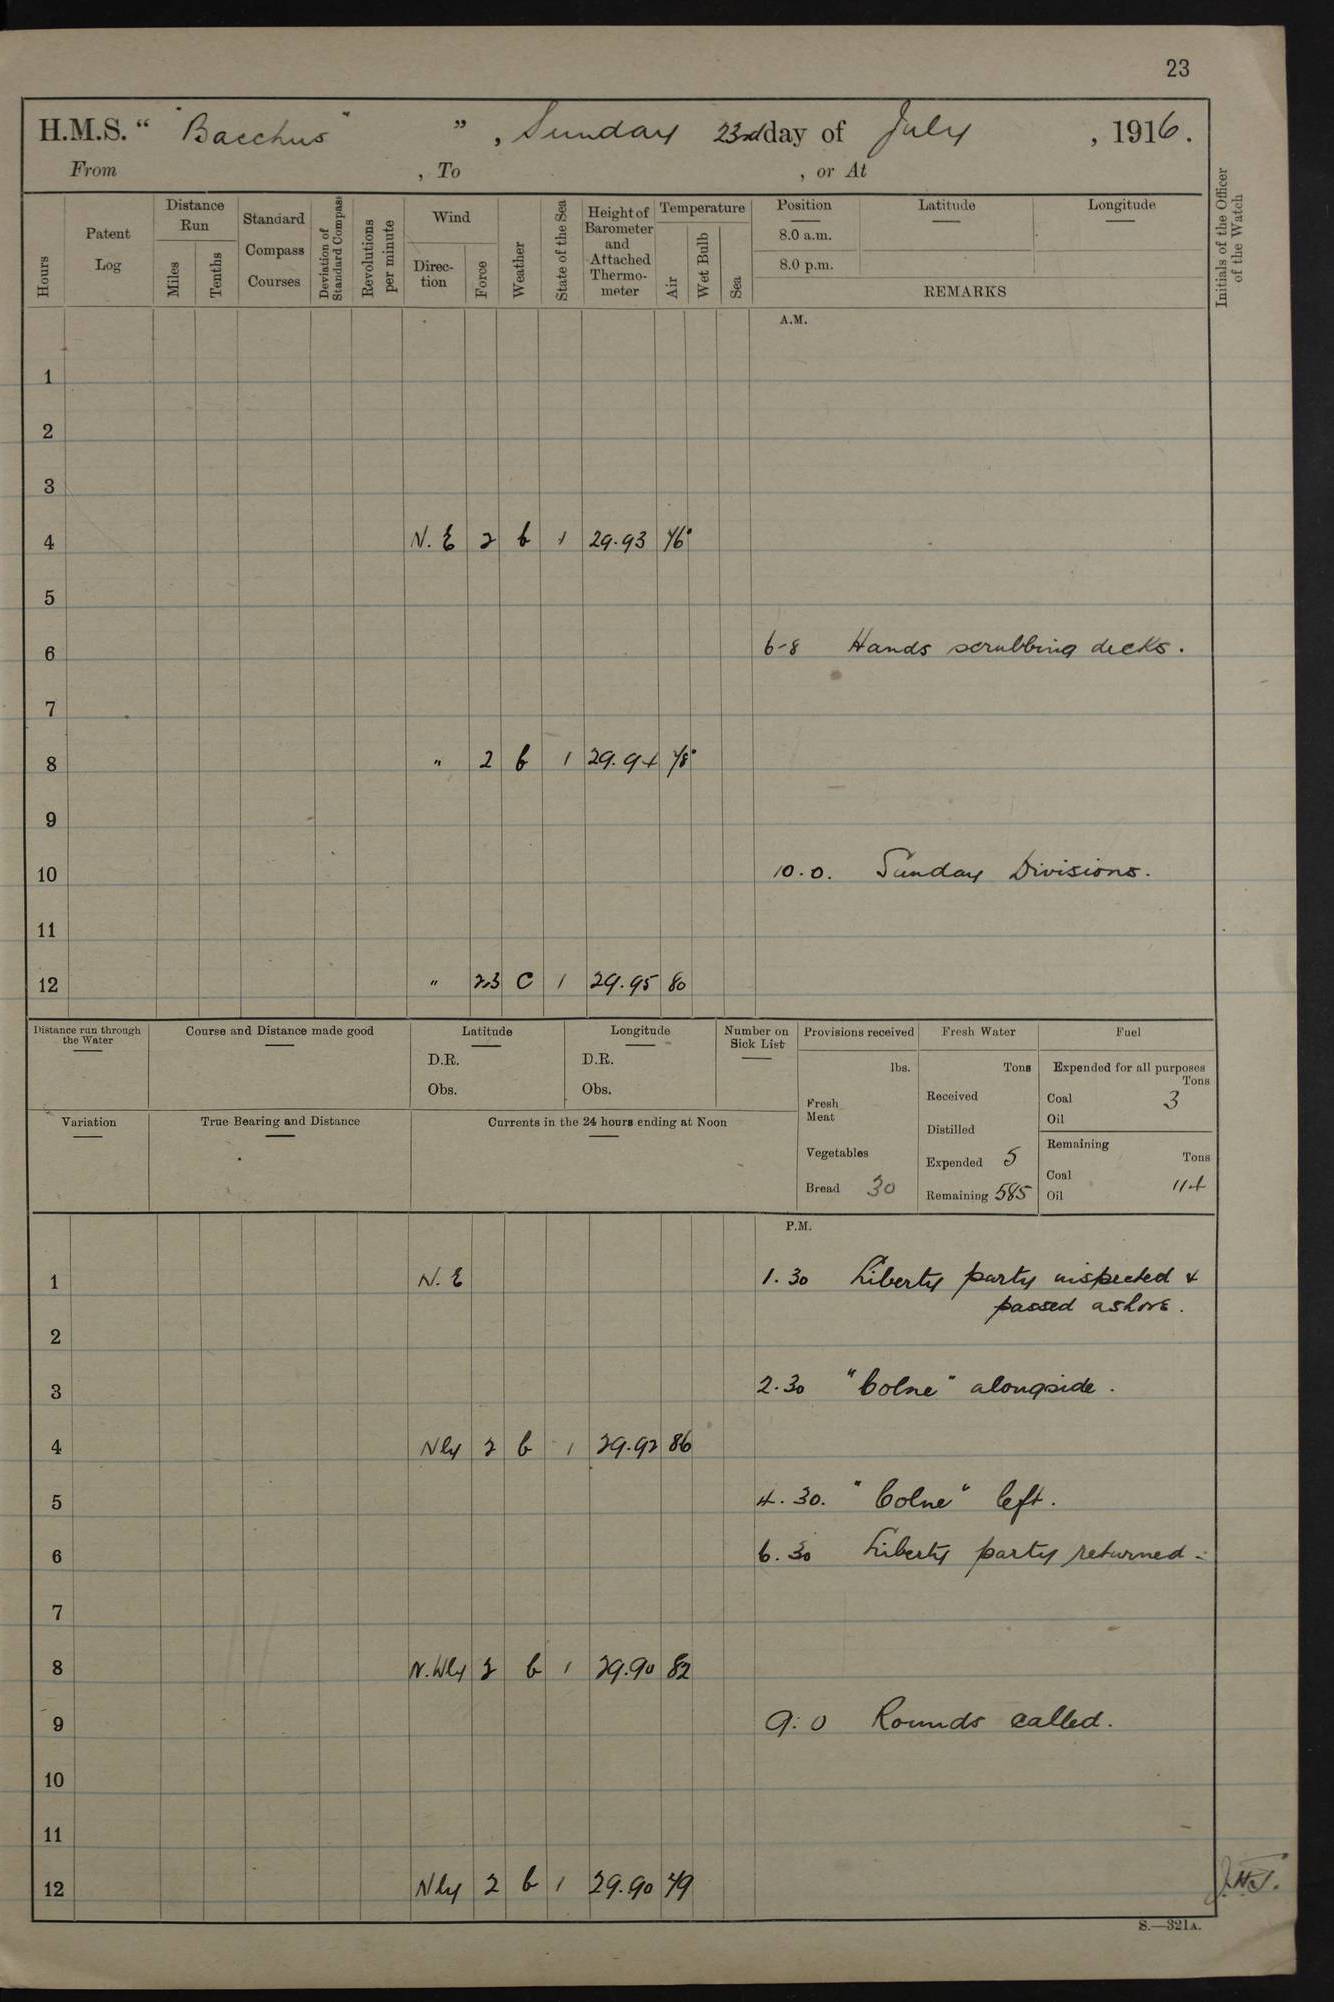 23
H.M.S. “ "Bacchus" ” , Sunday 23rd day of July , 1916.
From , To , or At
Hours
Patent Log
Distance Run
Miles
Tenths
Standard Compass Courses
Deviation of Standard Compass
Revolutions per minute
Wind
Direc-tion
Force
Weather
State of the Sea
Height of Barometer and Attached Thermo-meter
Temperature
Air
Wet Bulb
Sea
Position
8.0 a.m.
8.0 p.m.
Latitude
Longitude
REMARKS
Initials of the Officer of the Watch
A.M.
1
2
3
4 N. E 2 b 1 29.93 76°
5
6 6-8 Hands scrubbing decks.
7
8 " 2 b 1 29.94 78°
9
10 10.0. Sunday Divisions.
11
12 " 2.3 C 1 29.95 80
Distance run through the Water
Course and Distance made good
Latitude
D.R.
Obs.
Longitude
D.R.
Obs.
Number on Sick List
Variation
True Bearing and Distance
Currents in the 24 hours ending at Noon
Provisions received
lbs.
Fresh Meat
Vegetables
Bread 30
Fresh Water
Tons
Received
Distilled
Expended 5
Remaining 585
Fuel
Expended for all purposes
Tons
Coal 3
Oil
Remaining
Tons
Coal 114
Oil
P.M.
1 N. E 1.30 Liberty party inspected &
passed ashore.
2
3 2.30 "Colne" alongside.
4 Nly 2 b 1 29.92 86
5 4.30. "Colne" left.
6 6.30 Liberty party returned.
7
8 N.Wly 2 b 1 29.90 82
9 9.0 Rounds called.
10
11
12 Nly 2 b 1 29.90 79
S.—321A.